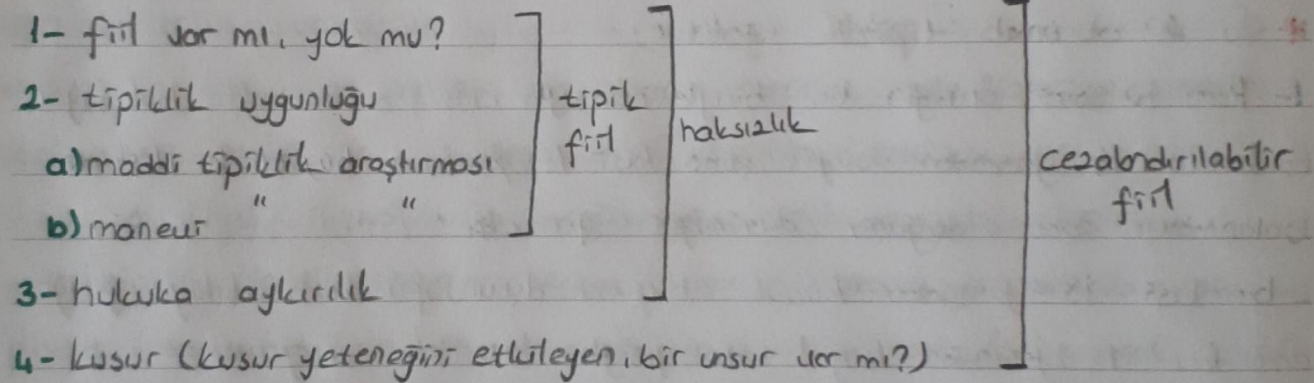 1- fiil var mı, yok mu?
2- tipiklik uygunluğu
a) maddi tipiklik araştırması
" "
b) manevi
3- hukuka aykırılık
4- kusur (kusur yeteneğini etkileyen, bir unsur var mı?)
tipik
fiil
haksızlık
cezalandırılabilir
fiil